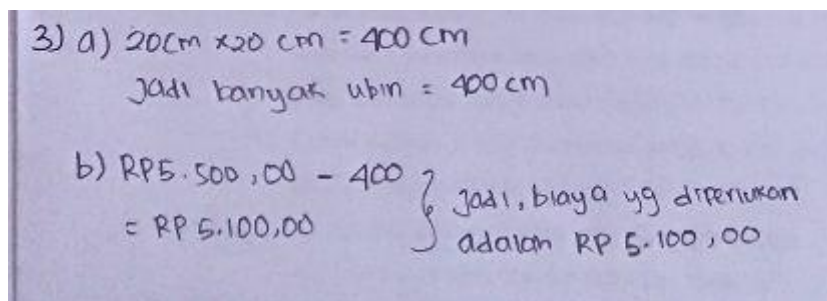 3) a) 20cm x20 cm = 400 cm
Jadi banyak ubin = 400 cm
b) RP5.500,00 - 400
= RP 5.100,00
Jadi, biaya yg diperlukan
adalah RP 5.100,00